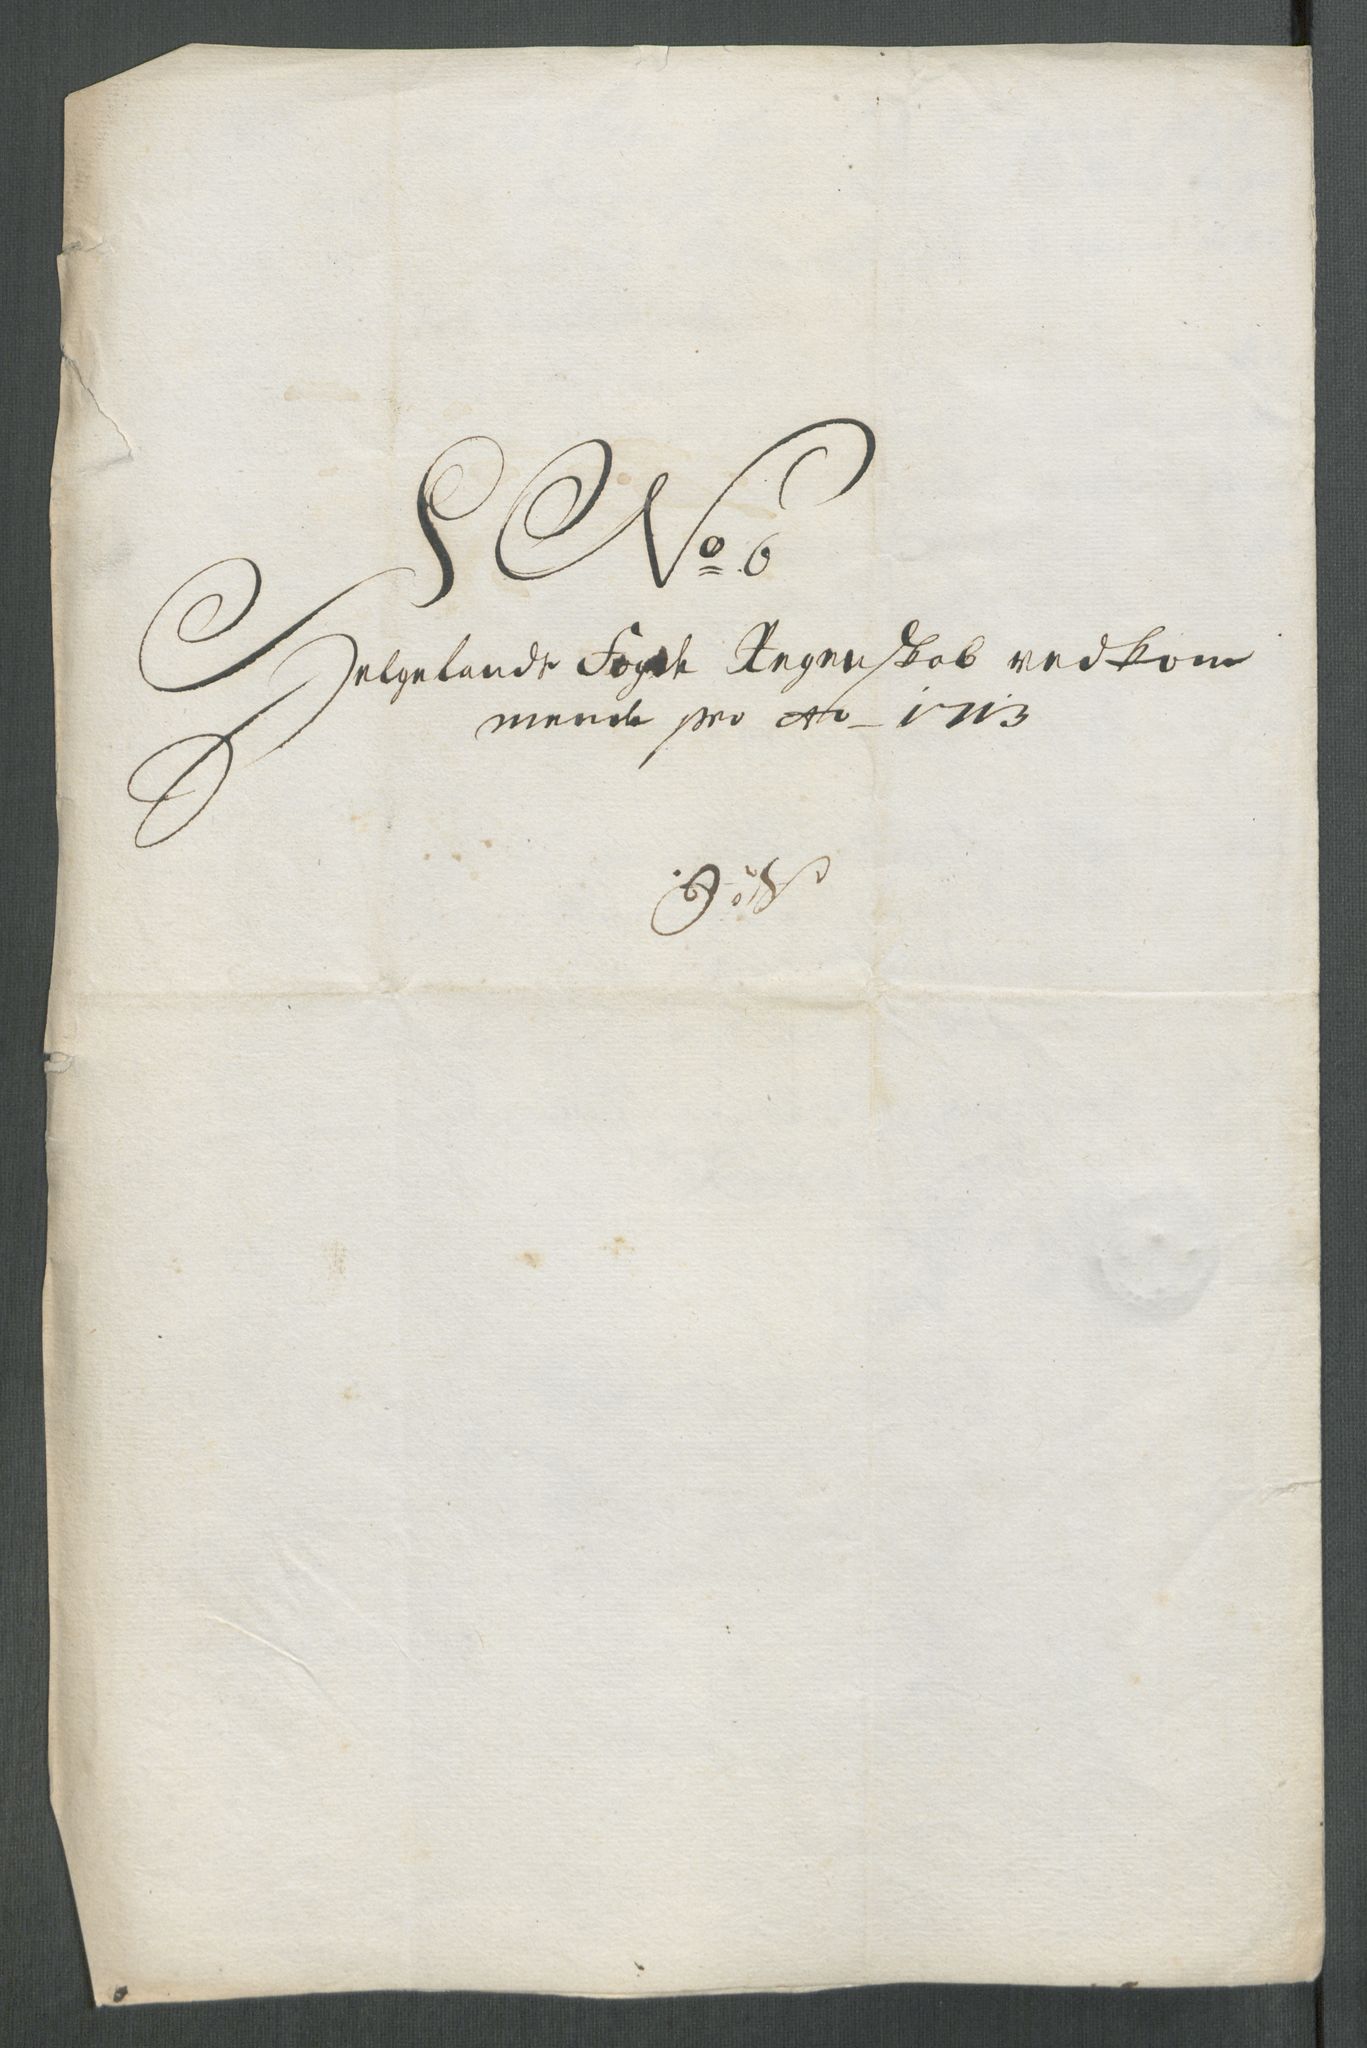 S No 6
Helgelands Fogde Regenskab vedkom
mende pro Ao 1713